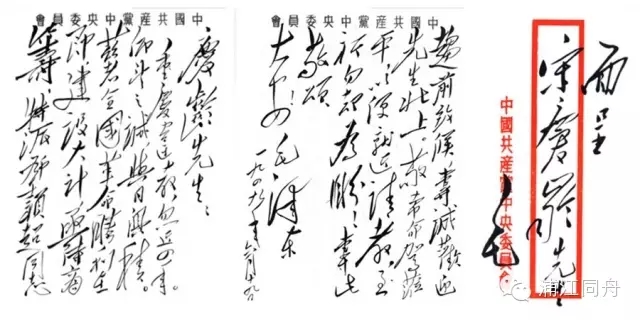 中國共産黨中央委員會
慶齡先生:
重慶違教,忽近四年。
仰望之誠,與日俱積。
茲者全國革命勝利在
即,建設大計,亟待商
籌,特派鄧穎超同志
中國共産黨中央委員會
趨前致候,專誠歡迎
先生北上。敬希命駕蒞
平,以便就近請教,至
祈勿却為盼!專此
敬頌
大安! 毛澤東
一九四九年六月十九日
面呈
宋慶齡先生
中國共産黨中央委員會
毛
浦江同舟